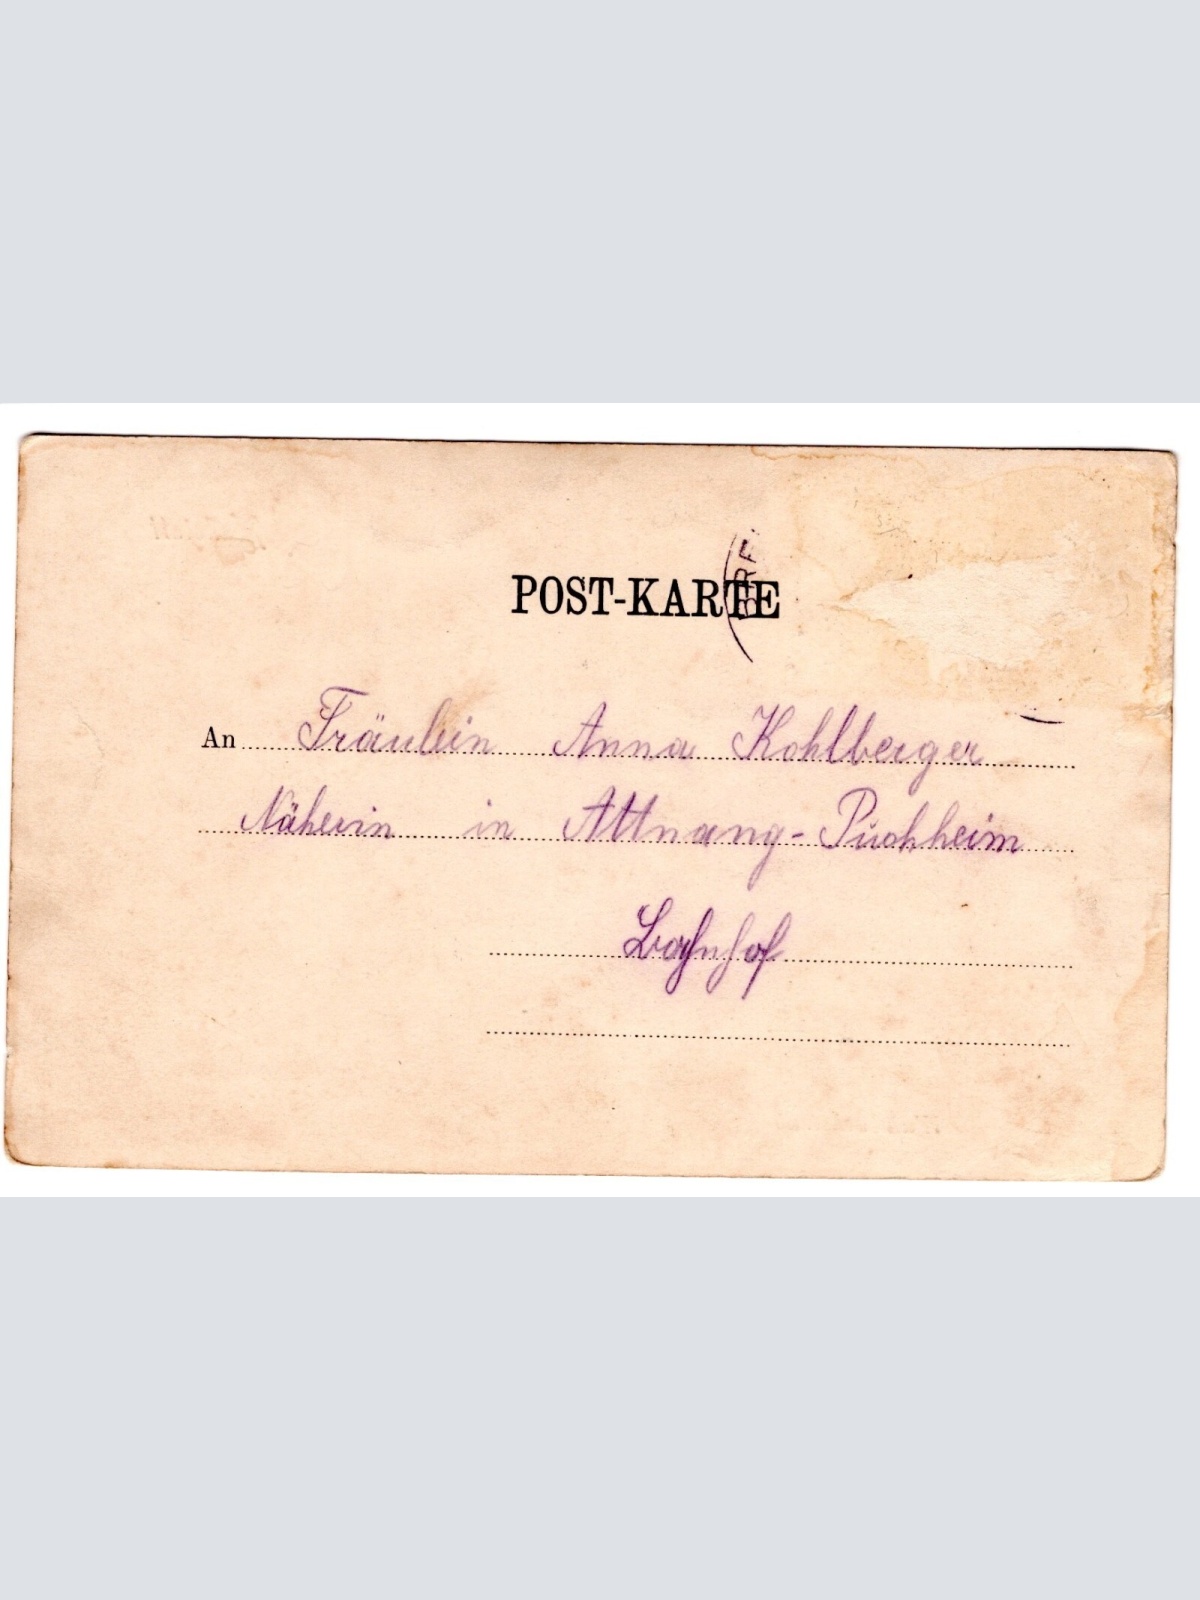 POST-KARTE
An Fräulein Anna Kohlberger
Näherin in Attnang-Puchheim
Bahnhof